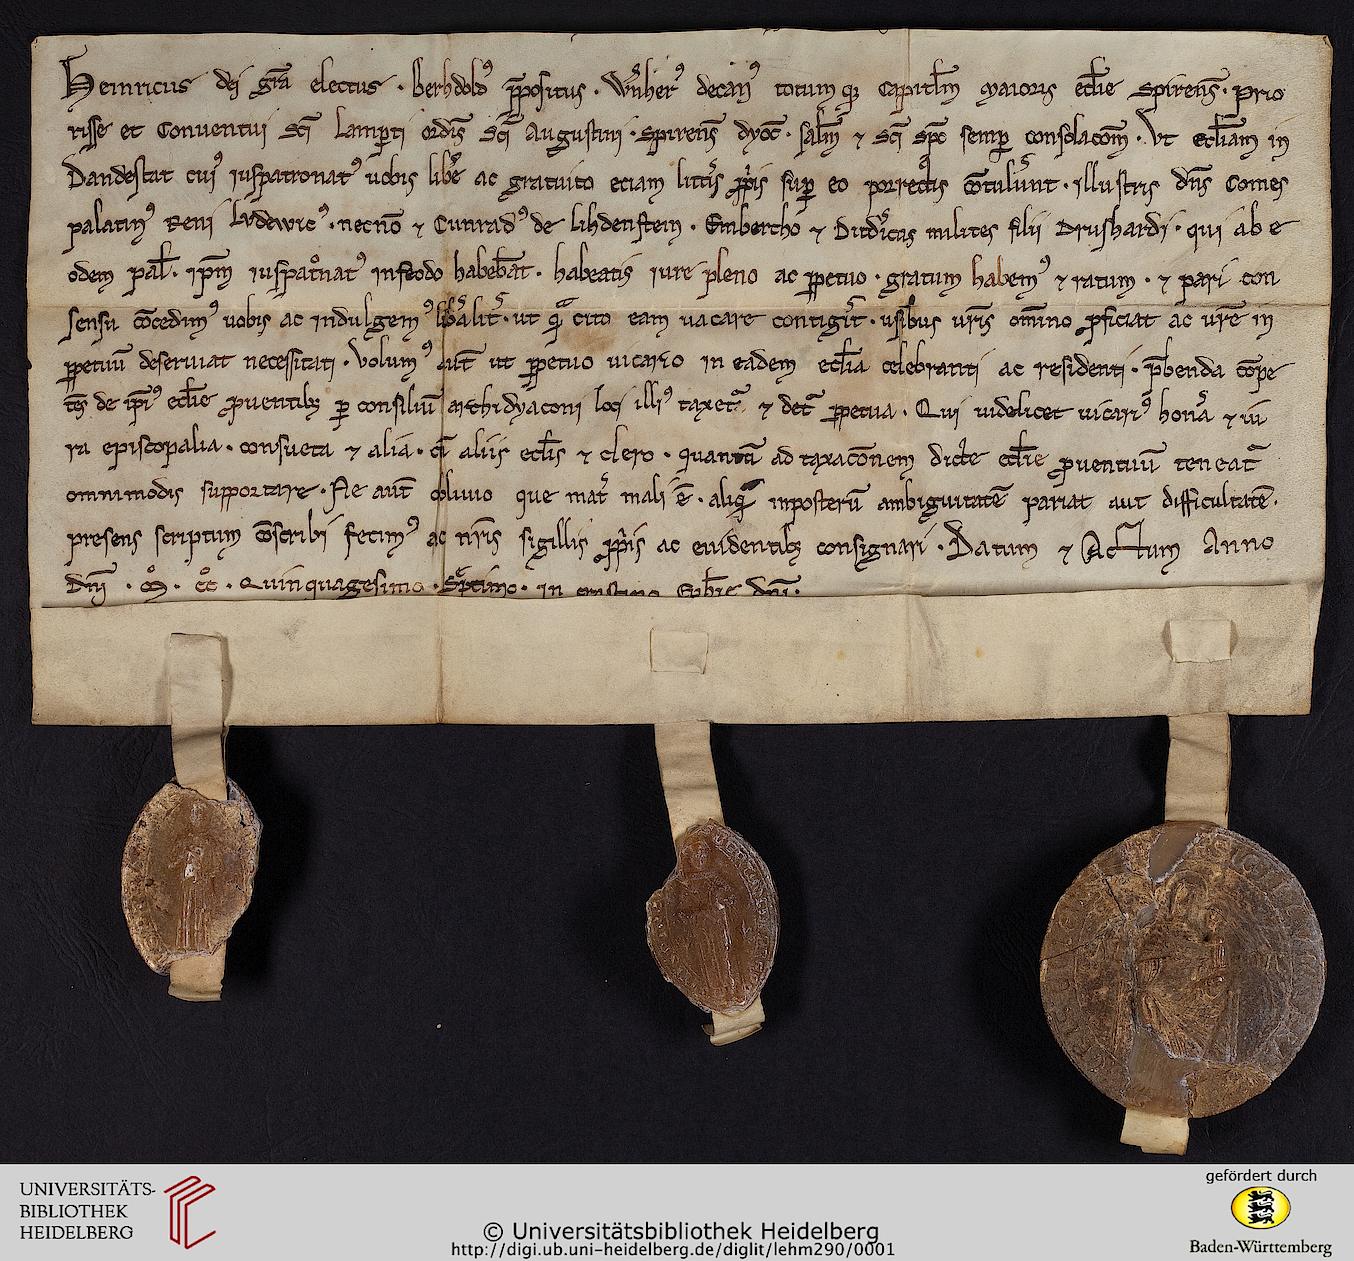 Heinricus dei gr̄a electus · Berhdold᷒ p̄positus · Wn̄her᷒ decan᷒ totum q; Capitl̄m maioris eccl̄ie Spirens̄ · Prio
risse et Conuentui sc̄i Lamp̄ti ordīs sc̄i Augustini · Spirens̄ dyoc̄ · sal̄m ⁊ sc̄i sp̄c semp̄ consolacōm · Ut eccl̄iam in
Dandestat cui᷒ iuspatronat᷒ uobis libe᷒ ac gratuito eciam litt̄is p̄p̄is sup̄ eo porrectis cōtulēunt · illustris dn̄s Comes
palatin᷒ Reni Ludewic᷒ · necnō ⁊ Cunrad᷒ de lihdenstein · Embercho ⁊ Ditd᷒icus milites filii Drushardi · qui ab e
odem pal̄ · ip̄m iuspat̄onat᷒ in feodo habebāt · habeatis iure pleno ac p̄petuo · gratum habem᷒ ⁊ ratum · ⁊ pari con
sensu cōcedim᷒ uobis ac indulgem᷒ lib̄alit̄ · ut q̄m cito eam uacare contigit̄ · usibus ur̄is om̄ino p̄ficiat ac ur̄e in
p̄petuū deseruiat necessitati · Volum᷒ aut̄ ut p̄petuo uicario in eadem eccl̄ia celebranti ac residenti · p̄benda cōpe
tēs de ip̄i᷒ eccl̄ie p̄uentib; p̄ consiliū archidyaconi loci illi᷒ taxet᷒ ⁊ det᷒ p̄petua · Qui uidelicet uicari᷒ hon̄a ⁊ iu
ra episcopalia · consueta ⁊ alia · cū aliis eccl̄is ⁊ clero · quantū ad taxacōnem dicte eccl̄ie p̄uentuū teneat᷒
omnimodis supportare · Ne aut̄ obliuio que mat̄ mali ē · aliq̄m inposterū ambiguitatē pariat aut difficultatē ·
presens scriptum cōscribi fecim᷒ ac nr̄is sigillis p̄p̄is ac euidentib; consignari · Datum ⁊ Actum Anno
Dn̄i · M̊ · CC̊ · Quinquagesimo · Septimo · in crastino Ephi̅e dn̄i ·
UNIVERSITÄTS-
BIBLIOTHEK
HEIDELBERG
© Universitätsbibliothek Heidelberg
http://digi.ub.uni-heidelberg.de/diglit/lehm290/0001
gefördert durch
Baden-Württemberg